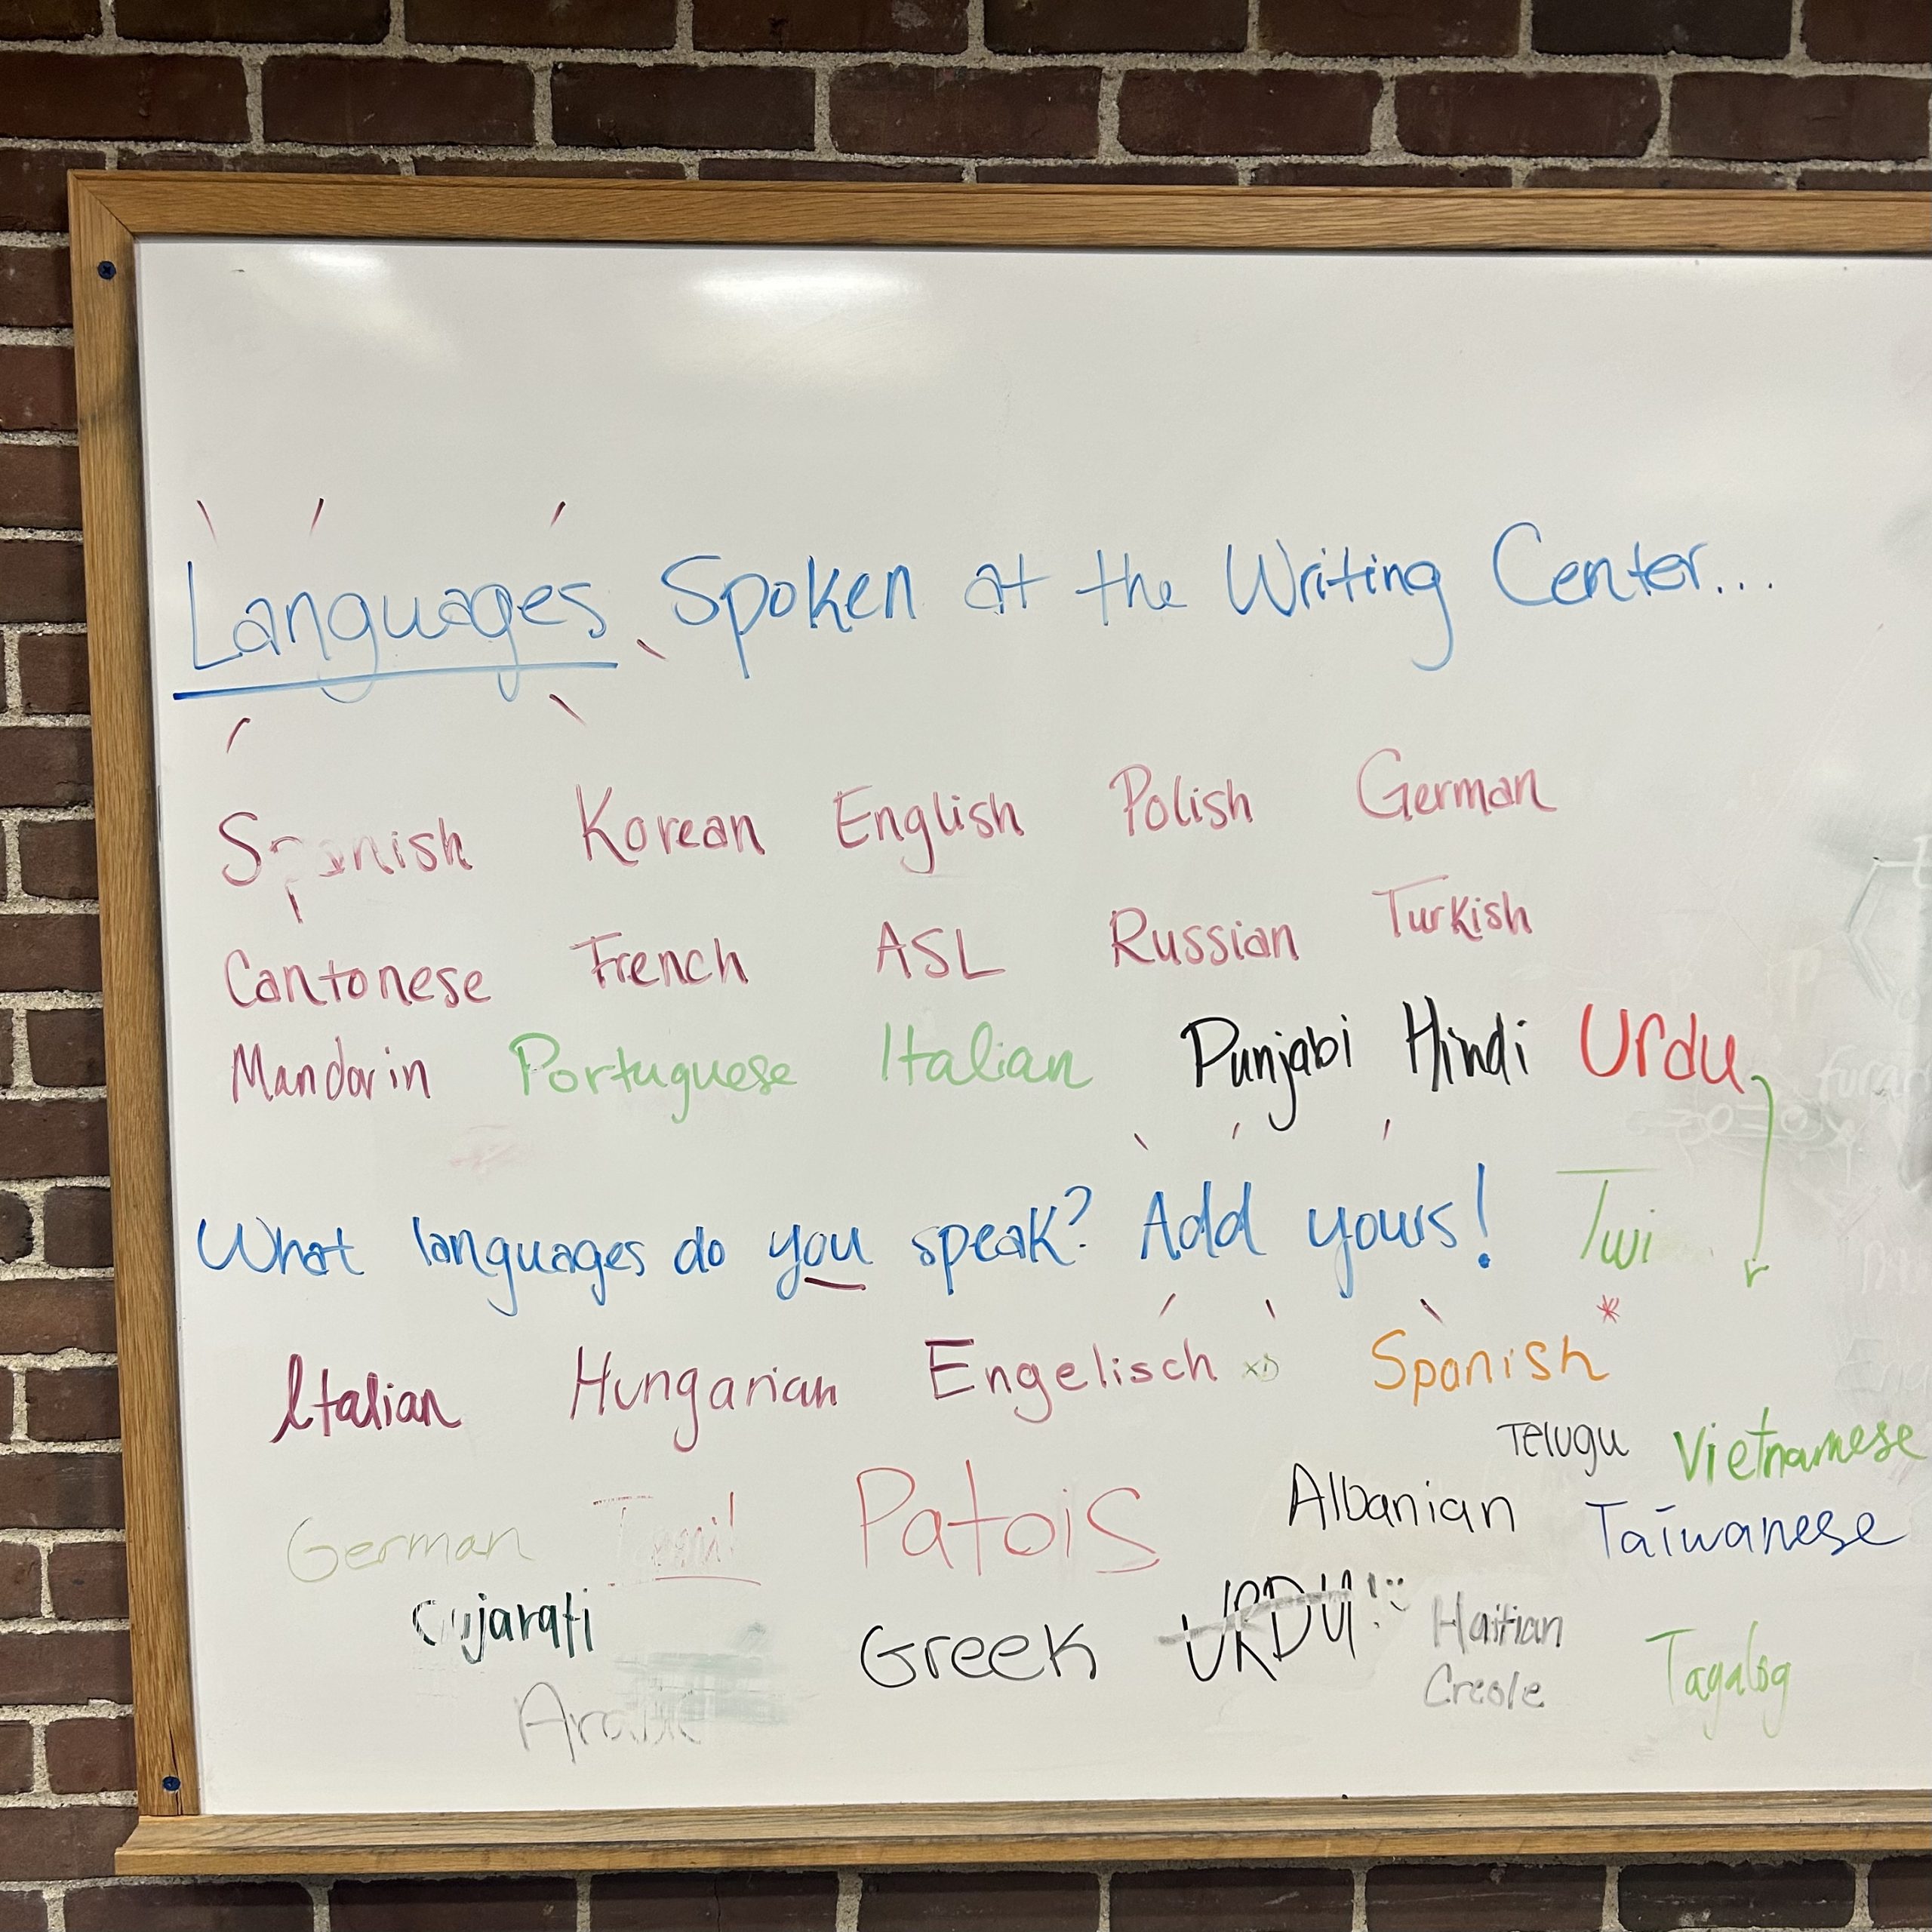 Languages Spoken at the Writing Center...
Spanish Korean English Polish German
Cantonese French ASL Russian Turkish
Mandarin Portuguese Italian Punjabi Hindi Urdu
What languages do you speak? Add yours! Twi
Italian Hungarian Engelisch xD Spanish*
Telugu Vietnamese
German Tamil Patois Albanian Taiwanese
Gujarati Greek URDU! Haitian
Creole Tagalog
Arabic